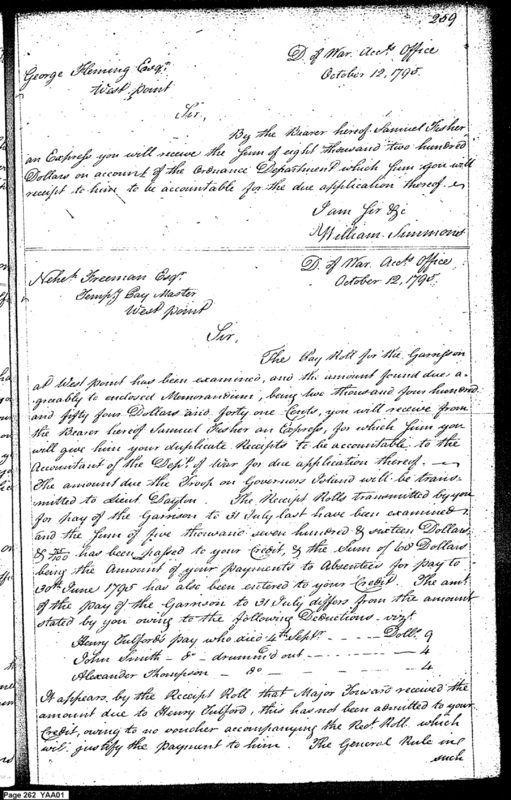 259
D. of War. Acct's Office
October 12, 1795.
George Fleming Esqr.
West point
Sir,
By the Bearer hereof Samuel Fisher
an Express you will receive the sum of eight thousand two hundred
Dollars on account of the Ordnance Department which sum you will
receipt to him to be accountable for the due application thereof.
I am Sir &c
William Simmons
D. of War. Acct's Office,
October 12, 1795.
Neheh. Freeman Esqr.
Tempy Pay Master
West point
Sir,
The Pay Roll for the Garrison
at West point has been examined, and the amount found due a-
greably to enclosed Memorandum, being two thousand four hundred
and fifty four Dollars and forty one Cents, you will receive from
the Bearer hereof Samuel Fisher an Express, for which sum you
will give him your duplicate Receipts to be accountable to the
Accountant of the Dept. of War for due application thereof.
The amount due the Troop on Governors Island will be trans-
mitted to Lieut Dayton. The Receipt Rolls transmitted by you
for pay of the Garrison to 31 July last have been examined
and the Sum of five thousand seven hundred & sixteen Dollars
& has been passed to your Credit, & the Sum of 68 Dollars
being the Amount of your payments to Absentees for pay to
30th June 1795 has also been entered to your Credit. The amt.
of the pay of the Garrison to 31 July differs from the amount
stated by you owing to the following Deductions. vizt.
Henry Tulford's pay who died 4th Septr. - - - - Dolls. 9
John Smith - do - drumm'd out - - - - 4
Alexander Thompson - do - - - - 4
It appears by the Receipt Roll that Major received the
amount due to Henry Tulford, this has not been admitted to your
Credit, owing to no voucher accompanying the Rect. Roll which
will justify the payment to him. The General Rule in
such
Page 262 YAA01